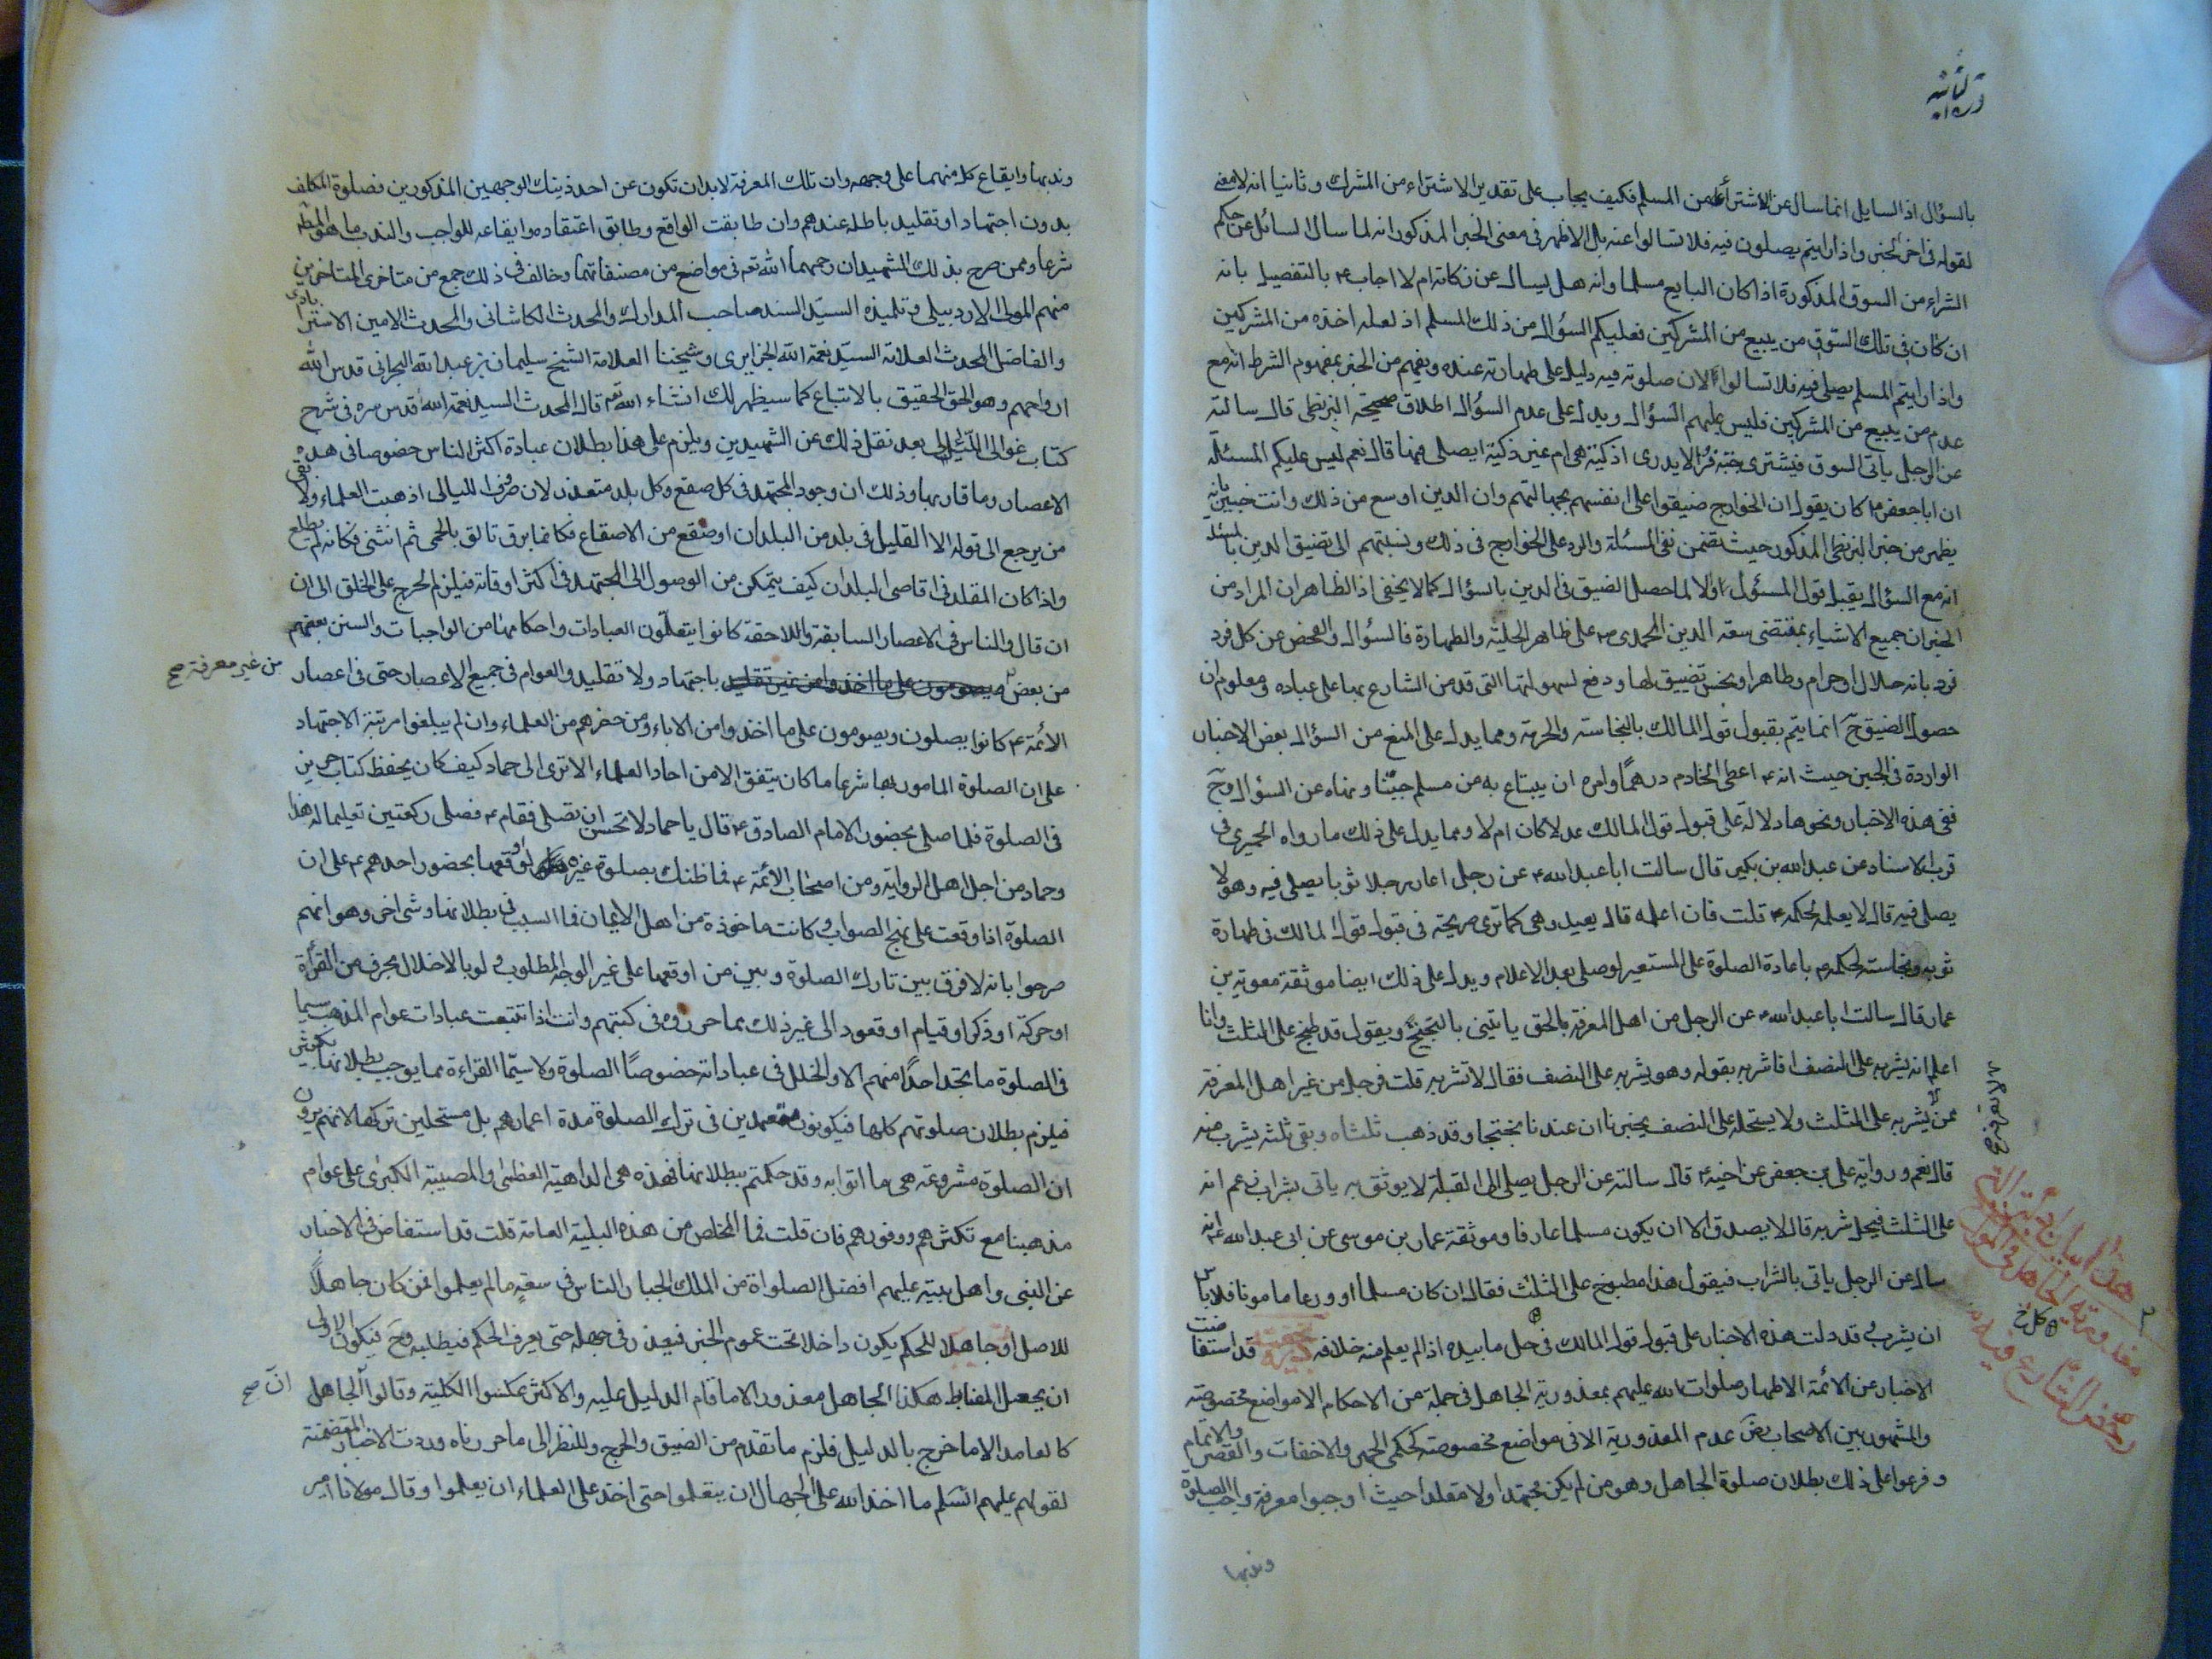 درة ثانية
بالسؤال اذ السايل انما سال عن الاشتراء من المسلم فكيف يجاب على تقدير الاشتراء من المشرك وثانيا انه لا معنى
لقوله فى اخر الخبر واذا رايتم يصلون فيه فلا تسالوا عنه بل الاظهر فى معنى الخبر المذكور انه لما سال السائل عن حكم
الشراء من السوق المذكورة اذا كان البايع مسلما وانه هل يسال عن ذكاته ام لا اجاب ع بالتفصيل بانه
ان كان فى تلك السوق من يبيع من المشركين فعليكم السؤال من ذلك المسلم اذ لعله اخذه من المشركين
واذا رايتم المسلم يصلى فيه فلا تسالوا لان صلوته فيه دليل على طهارته عنده ويفهم من الخبر بمفهوم الشرط انه مع
عدم من يبيع من المشركين فليس عليهم السؤال ويدل على عدم السؤال اطلاق صحيحة البزنطى قال سالته
عن الرجل ياتى السوق فيشترى جبة فراء لا يدرى اذكية هى ام غير ذكية ايصلى فيها قال نعم ليس عليكم المسئلة
ان ابا جعفر ع كان يقول ان الخوارج ضيقوا على انفسهم بجهالتهم وان الدين اوسع من ذلك وانت خبير بانه
يظهر من خبر البزنطى المذكور حيث تضمن نفى المسئلة والرد على الخوارج فى ذلك ونسبتهم الى تضيق الدين بالمسئلة
انه مع السؤال يقبل قول المسئول والا لما حصل الضيق فى الدين بالسؤال كما لا يخفى اذ الظاهر ان المراد من
الخبر ان جميع الاشياء بمقتضى سعة الدين المحمدى ص على ظاهر الحلية والطهارة فالسؤال والفحص عن كل فرد
فرد بانه حلال او حرام وطاهر او نجس تضييق لها ودفع لسهولتها التى قد من الشارع بها على عباده ومعلوم ان
حصول الضيق ح انما يتم بقبول قول المالك بالنجاسة والحرمة ومما يدل على المنع من السؤال بعض الاخبار
الواردة فى الجبن حيث انه ع اعطى الخادم درهما وامره ان يبتاع به من مسلم جبنا ونهاه عن السؤال وح
ففى هذه الاخبار ونحوها دلالة على قبول قول المالك عدلا كان ام لا ومما يدل على ذلك ما رواه الحميرى فى
قرب الاسناد عن عبد الله بن بكير قال سالت ابا عبد الله ع عن رجل اعار رجلا ثوبا يصلى فيه وهو لا
يصلى فيه قال لا يعلمه قلت فان اعلمه قال يعيد وهى كما ترى صريحة فى قبول قول المالك فى طهارة
ثوبه ونجاسته لحكمه باعادة الصلوة على المستعير لو صلى بعد الاعلام ويدل على ذلك ايضا موثقة معوية بن
عمار قال سالت ابا عبد الله ع عن الرجل من اهل المعرفة بالحق ياتينى بالبختج ويقول قد طبخ على الثلث وانا
اعلم انه يشربه على النصف افاشربه بقوله وهو يشربه على النصف فقال لا تشربه قلت فرجل من غير اهل المعرفة
ممن يشربه على الثلث ولا يستحله على النصف يخبرنا ان عندنا بختجا وقد ذهب ثلثاه وبقى ثلثه يشرب منه
قال نعم ورواية على بن جعفر عن اخيه ع قال سالته عن الرجل يصلى الى القبلة لا يوثق به ياتى بشراب زعم انه
على الثلث فيحل شربه قال لا يصدق الا ان يكون مسلما عارفا وموثقة عمار بن موسى عن ابى عبد الله ع انه
سال عن الرجل ياتى بالشراب فيقول هذا مطبوخ على الثلث فقال ان كان مسلما او ورعا مامونا فلا باس
ان يشرب وقد دلت هذه الاخبار على قبول قول المالك فى حل ما بيده اذا لم يعلم منه خلافه درة نجفية قد استفاضت
الاخبار عن الائمة الاطهار صلوات الله عليهم بمعذورية الجاهل فى جملة من الاحكام الا مواضع مخصوصة
والمشهور بين الاصحاب رض عدم المعذورية الا فى مواضع مخصوصة كحكمى الجهر والاخفات والقصر والاتمام
وفرعوا على ذلك بطلان صلوة الجاهل وهو من لم يكن مجتهدا ولا مقلدا حيث اوجبوا معرفة واجب الصلوة
وندبها
وندبها وايقاع كل منهما على وجهه وان تلك المعرفة لابد ان تكون عن احد ذينك الوجهين المذكورين فصلوة المكلف
بدون اجتهاد او تقليد باطلة عندهم وان طابقت الواقع وطابق اعتقاده وايقاعه للواجب والندب ما هو المط
شرعا وممن صرح بذلك الشهيدان رحمهما الله تعه فى مواضع من مصنفاتهما وخالف فى ذلك جمع من متاخرى المتاخرين
منهم المولى الاردبيلى وتلميذه السيد السند صاحب المدارك والمحدث الكاشانى والمحدث الامين الاسترابادى
والفاضل المحدث العلامة السيد نعمة الله الجزايرى وشيخنا العلامة الشيخ سليمان بن عبد الله البحرانى قدس الله
ارواحهم وهو الحق الحقيق بالاتباع كما سيظهر لك انشاء الله تعه قال المحدث السيد نعمة الله قدس سره فى شرح
كتاب غوالى اللئالى بعد نقل ذلك عن الشهيدين ويلزم على هذا بطلان عبادة اكثر الناس خصوصا فى هذه
الاعصار وما قاربها وذلك ان وجود المجتهد فى كل صقع وكل بلد متعذر لان صروف الليالى اذهبت العلماء ولا بقى
من يرجع الى قوله الا القليل فى بلد من البلدان او صقع من الاصقاع فكانما برق تالق بالحمى ثم انثنى فكانه لم يطلع
واذا كان المقلد فى اقاصى البلدان كيف يتمكن من الوصول الى المجتهد فى اكثر اوقاته فيلزم الحرج على الخلق الى ان
ان قال والناس فى الاعصار السابقة واللاحقة كانوا يتعلمون العبادات واحكامها من الواجبات والسنن بعضهم
من بعض من غير معرفة صح باجتهاد ولا تقليد والعوام فى جميع الاعصار حتى فى اعصار
الائمة ع كانوا يصلون ويصومون على ما اخذوا من الاباء ومن حضرهم من العلماء وان لم يبلغوا مرتبة الاجتهاد
على ان الصلوة المامور بها شرعا ما كان يتفق الا من احاد العلماء الا ترى الى حماد كيف كان يحفظ كتاب حريز
فى الصلوة فلما صلى بحضور الامام الصادق ع قال يا حماد لا تحسن ان تصلى فقام ع فصلى ركعتين تعليما له هذا
وحماد من اجل اهل الرواية ومن اصحاب الائمة ع فما ظنك بصلوة غيره لو وقعها بحضور احدهم ع على ان
الصلوة اذا وقعت على نهج الصواب وكانت ماخوذة من اهل الايمان فما السبب فى بطلانها وشئ اخر وهو انهم
صرحوا بانه لا فرق بين تارك الصلوة وبين من اوقعها على غير الوجه المطلوب ولو بالاخلال بحرف من القراءة
او حركة او ذكر او قيام او قعود الى غير ذلك مما حرروه فى كتبهم وانت اذا تتبعت عبادات عوام المذهب سيما
فى الصلوة ما تجد احدا منهم الا والخلل فى عباداته خصوصا الصلوة ولا سيما القراءة مما يوجب بطلانها بكثير
فيلزم بطلان صلوتهم كلها فيكونون متعمدين فى ترك الصلوة مدة اعمارهم بل مستحلين تركها لانهم يرون
ان الصلوة مشروعة هى ما اتوا به وقد حكمتم ببطلانها فهذه هى الداهية العظمى والمصيبة الكبرى على عوام
مذهبنا مع تكثرهم ووفورهم فان قلت فما المخلص من هذه البلية العامة قلت قد استفاض فى الاخبار
عن النبى واهل بيته عليهم افضل الصلواة من الملك الجبار الناس فى سعة ما لم يعلموا فمن كان جاهلا
للاصل او جاهلا للحكم يكون داخلا تحت عموم الخبر فيعذر فى جهله حتى يعرف الحكم فيطلبه وح فيكون الاولى
ان يجعل الضابط هكذا الجاهل معذور الا ما قام الدليل عليه والاكثر عكسوا الكلية وقالوا ان صح الجاهل
كالعامد الا ما خرج بالدليل فلزم ما تقدم من الضيق والحرج وللنظر الى ما حررناه وردت الاخبار المتضمنة
لقولهم عليهم السلم ما اخذ الله على الجهال ان يتعلموا حتى اخذ على العلماء ان يعلموا وقال مولانا امير